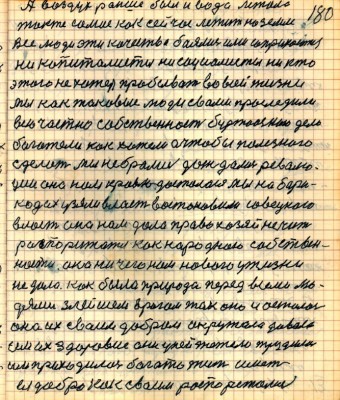 180
А воздух раньше был и вода летала
также самое как сейчас лежит на земле
все люди эти качества боялись или
ни капиталисты ни социалисты ни кто
этого не хотел пробовать во своей жизни
мы как таковые люди своими проследили
всю частно собственность буржуазною дело
богатели как хотели а чтобы полезного
сделать мы не брались дождались револю-
ции она нам кровью досталась мы на бари-
кадах узяли власть востоновили совецкую
власть она нам дала право хозяйничить
распоряжатся как народною собствен-
ностю она ничего нам нового у жизни
не дала как была природа перед всеми лю-
дями злейшем врагом так оно и осталос
она их своим добром окружала давала
сем их здоровие они у ней хотели трудится
им приходилас богато жит имет
ея добро как своим распоряжатся